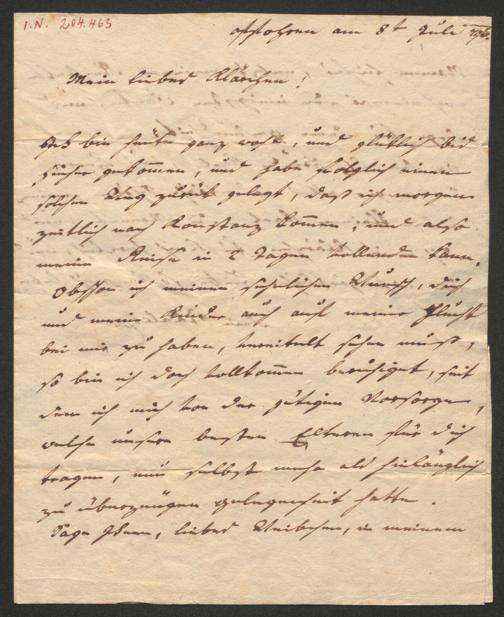 I.N. 204.463
am 8t Juli
Mein liebes Klaerchen!
Ich bin heute ganz wohl, und glüklich bis
hieher gekommen, und habe folglich einen
solchen Weg zurük gelegt, daß ich morgen
zeitlich nach Konstanz komme, und also
meine Reise in 2 Tagen vollenden kann.
Obschon ich meinen sehnlichen Wunsch, dich
und meine Kinder auch auf meiner Flucht
bei mir zu haben, vereitelt sehen muß,
so bin ich doch vollkommen beruhiget, seit
dem ich mich von der gütigen Vorsorge,
welche unsere besten Eltern für dich
tragen, nun selbst mehr als hinlänglich
zu überzeugen gelegenheit hatte.
Sage Ihnen, liebes Weibchen, in meinem